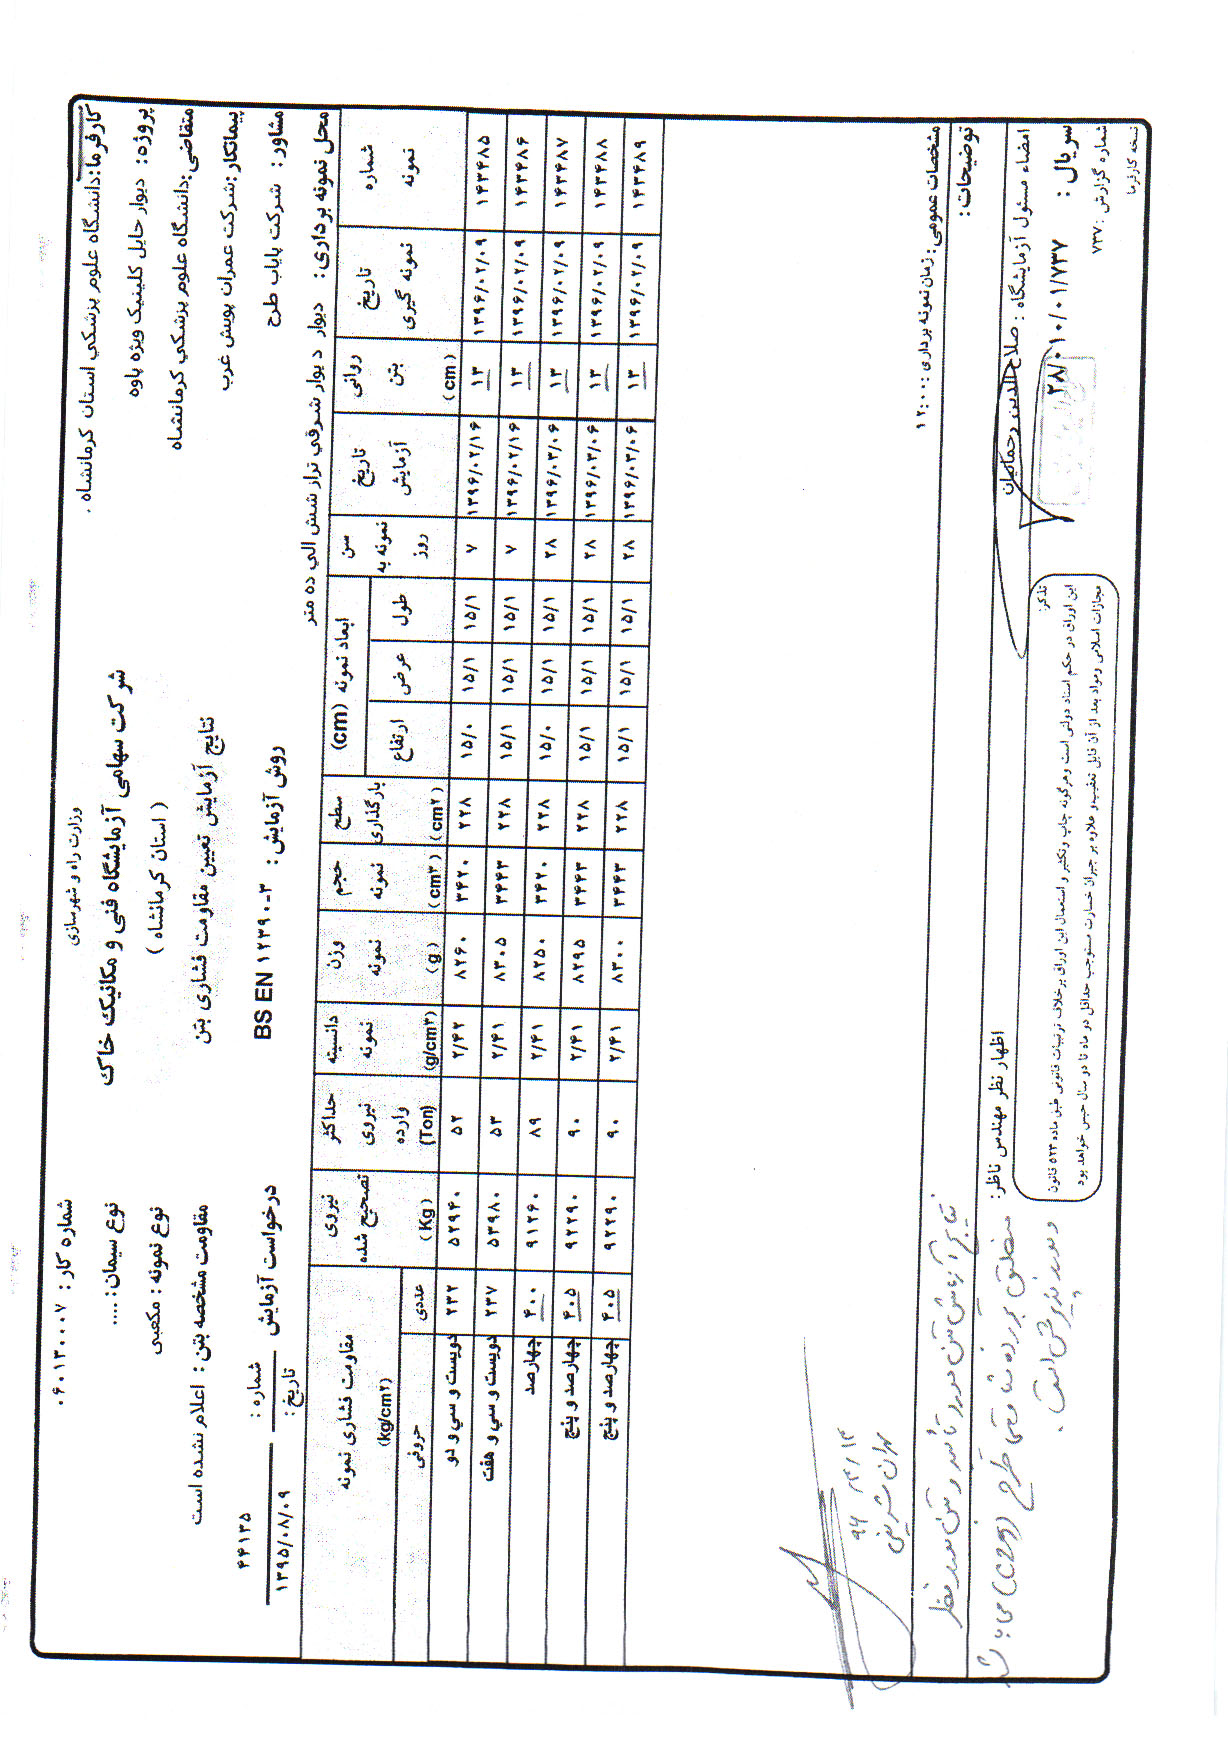 وزارت راه و شهرسازی
شرکت سهامی آزمایشگاه فنی و مکانیک خاک
( استان کرمانشاه )
نتایج آزمایش تعیین مقاومت فشاری بتن
روش آزمایش : BS EN ۱۲۳۹۰-۳
کارفرما: دانشگاه علوم پزشکي استان کرمانشاه .
پروژه: دیوار حایل کلینیک ویژه پاوه
متقاضی: دانشگاه علوم پزشکي کرمانشاه
پیمانکار: شرکت عمران پویش غرب
مشاور: شرکت پایاب طرح
محل نمونه برداری: دیوار دیوار شرقي تراز شش الي ده متر
شماره کار: ۰۶۰۱۳۰۰۰۷
نوع سیمان: ....
نوع نمونه: مکعبی
مقاومت مشخصه بتن: اعلام نشده است
درخواست آزمایش
شماره: ۴۴۱۳۵
تاریخ: ۱۳۹۵/۰۸/۰۹
شماره نمونه | تاریخ نمونه گیری | روانی بتن (cm) | تاریخ آزمایش | سن نمونه به روز | ابعاد نمونه (cm) طول | عرض | ارتفاع | سطح بارگذاری (cm۲) | حجم نمونه (cm۳) | وزن نمونه (g) | دانسیته نمونه (g/cm۳) | حداکثر نیروی وارده (Ton) | نیروی تصحیح شده (Kg) | مقاومت فشاری نمونه (kg/cm۲) عددی | حروفی
۱۴۳۴۸۵ | ۱۳۹۶/۰۲/۰۹ | ۱۳ | ۱۳۹۶/۰۲/۱۶ | ۷ | ۱۵/۱ | ۱۵/۱ | ۱۵/۰ | ۲۲۸ | ۳۴۲۰ | ۸۲۶۰ | ۲/۴۲ | ۵۲ | ۵۲۹۴۰ | ۲۳۲ | دویست و سي و دو
۱۴۳۴۸۶ | ۱۳۹۶/۰۲/۰۹ | ۱۳ | ۱۳۹۶/۰۲/۱۶ | ۷ | ۱۵/۱ | ۱۵/۱ | ۱۵/۱ | ۲۲۸ | ۳۴۴۳ | ۸۳۰۵ | ۲/۴۱ | ۵۳ | ۵۳۹۸۰ | ۲۳۷ | دویست و سي و هفت
۱۴۳۴۸۷ | ۱۳۹۶/۰۲/۰۹ | ۱۳ | ۱۳۹۶/۰۳/۰۶ | ۲۸ | ۱۵/۱ | ۱۵/۱ | ۱۵/۰ | ۲۲۸ | ۳۴۲۰ | ۸۲۵۰ | ۲/۴۱ | ۸۹ | ۹۱۲۶۰ | ۴۰۰ | چهارصد
۱۴۳۴۸۸ | ۱۳۹۶/۰۲/۰۹ | ۱۳ | ۱۳۹۶/۰۳/۰۶ | ۲۸ | ۱۵/۱ | ۱۵/۱ | ۱۵/۱ | ۲۲۸ | ۳۴۴۳ | ۸۲۹۵ | ۲/۴۱ | ۹۰ | ۹۲۲۹۰ | ۴۰۵ | چهارصد و پنج
۱۴۳۴۸۹ | ۱۳۹۶/۰۲/۰۹ | ۱۳ | ۱۳۹۶/۰۳/۰۶ | ۲۸ | ۱۵/۱ | ۱۵/۱ | ۱۵/۱ | ۲۲۸ | ۳۴۴۳ | ۸۳۰۰ | ۲/۴۱ | ۹۰ | ۹۲۲۹۰ | ۴۰۵ | چهارصد و پنج
۹۶/۴/۱۴
مشخصات عمومی: زمان نمونه برداری : ۱۲:۰۰
توضیحات:
امضاء مسئول آزمایشگاه : صلاح الدین رحمانیان
اظهار نظر مهندس ناظر:
نتایج آزمایش بتن مورد تأیید و بتن مورد نظر
منطبق بر رده مقاومتی طرح (C25) می باشد
و مورد پذیرش است.
سریال : ۲۸/۰۱۰/۰۱/۷۳۷
شماره گزارش: ۷۳۷
نسخه کارفرما
تذکر:
این اوراق در حکم اسناد دولتی است و هرگونه چاپ و تکثیر و استعمال این اوراق برخلاف ترتیبات قانونی طبق ماده ۵۲۳ قانون
مجازات اسلامی و مواد بعد از آن قابل تعقیب و علاوه بر جبران خسارت مستوجب حداقل دو ماه تا دو سال حبس خواهد بود